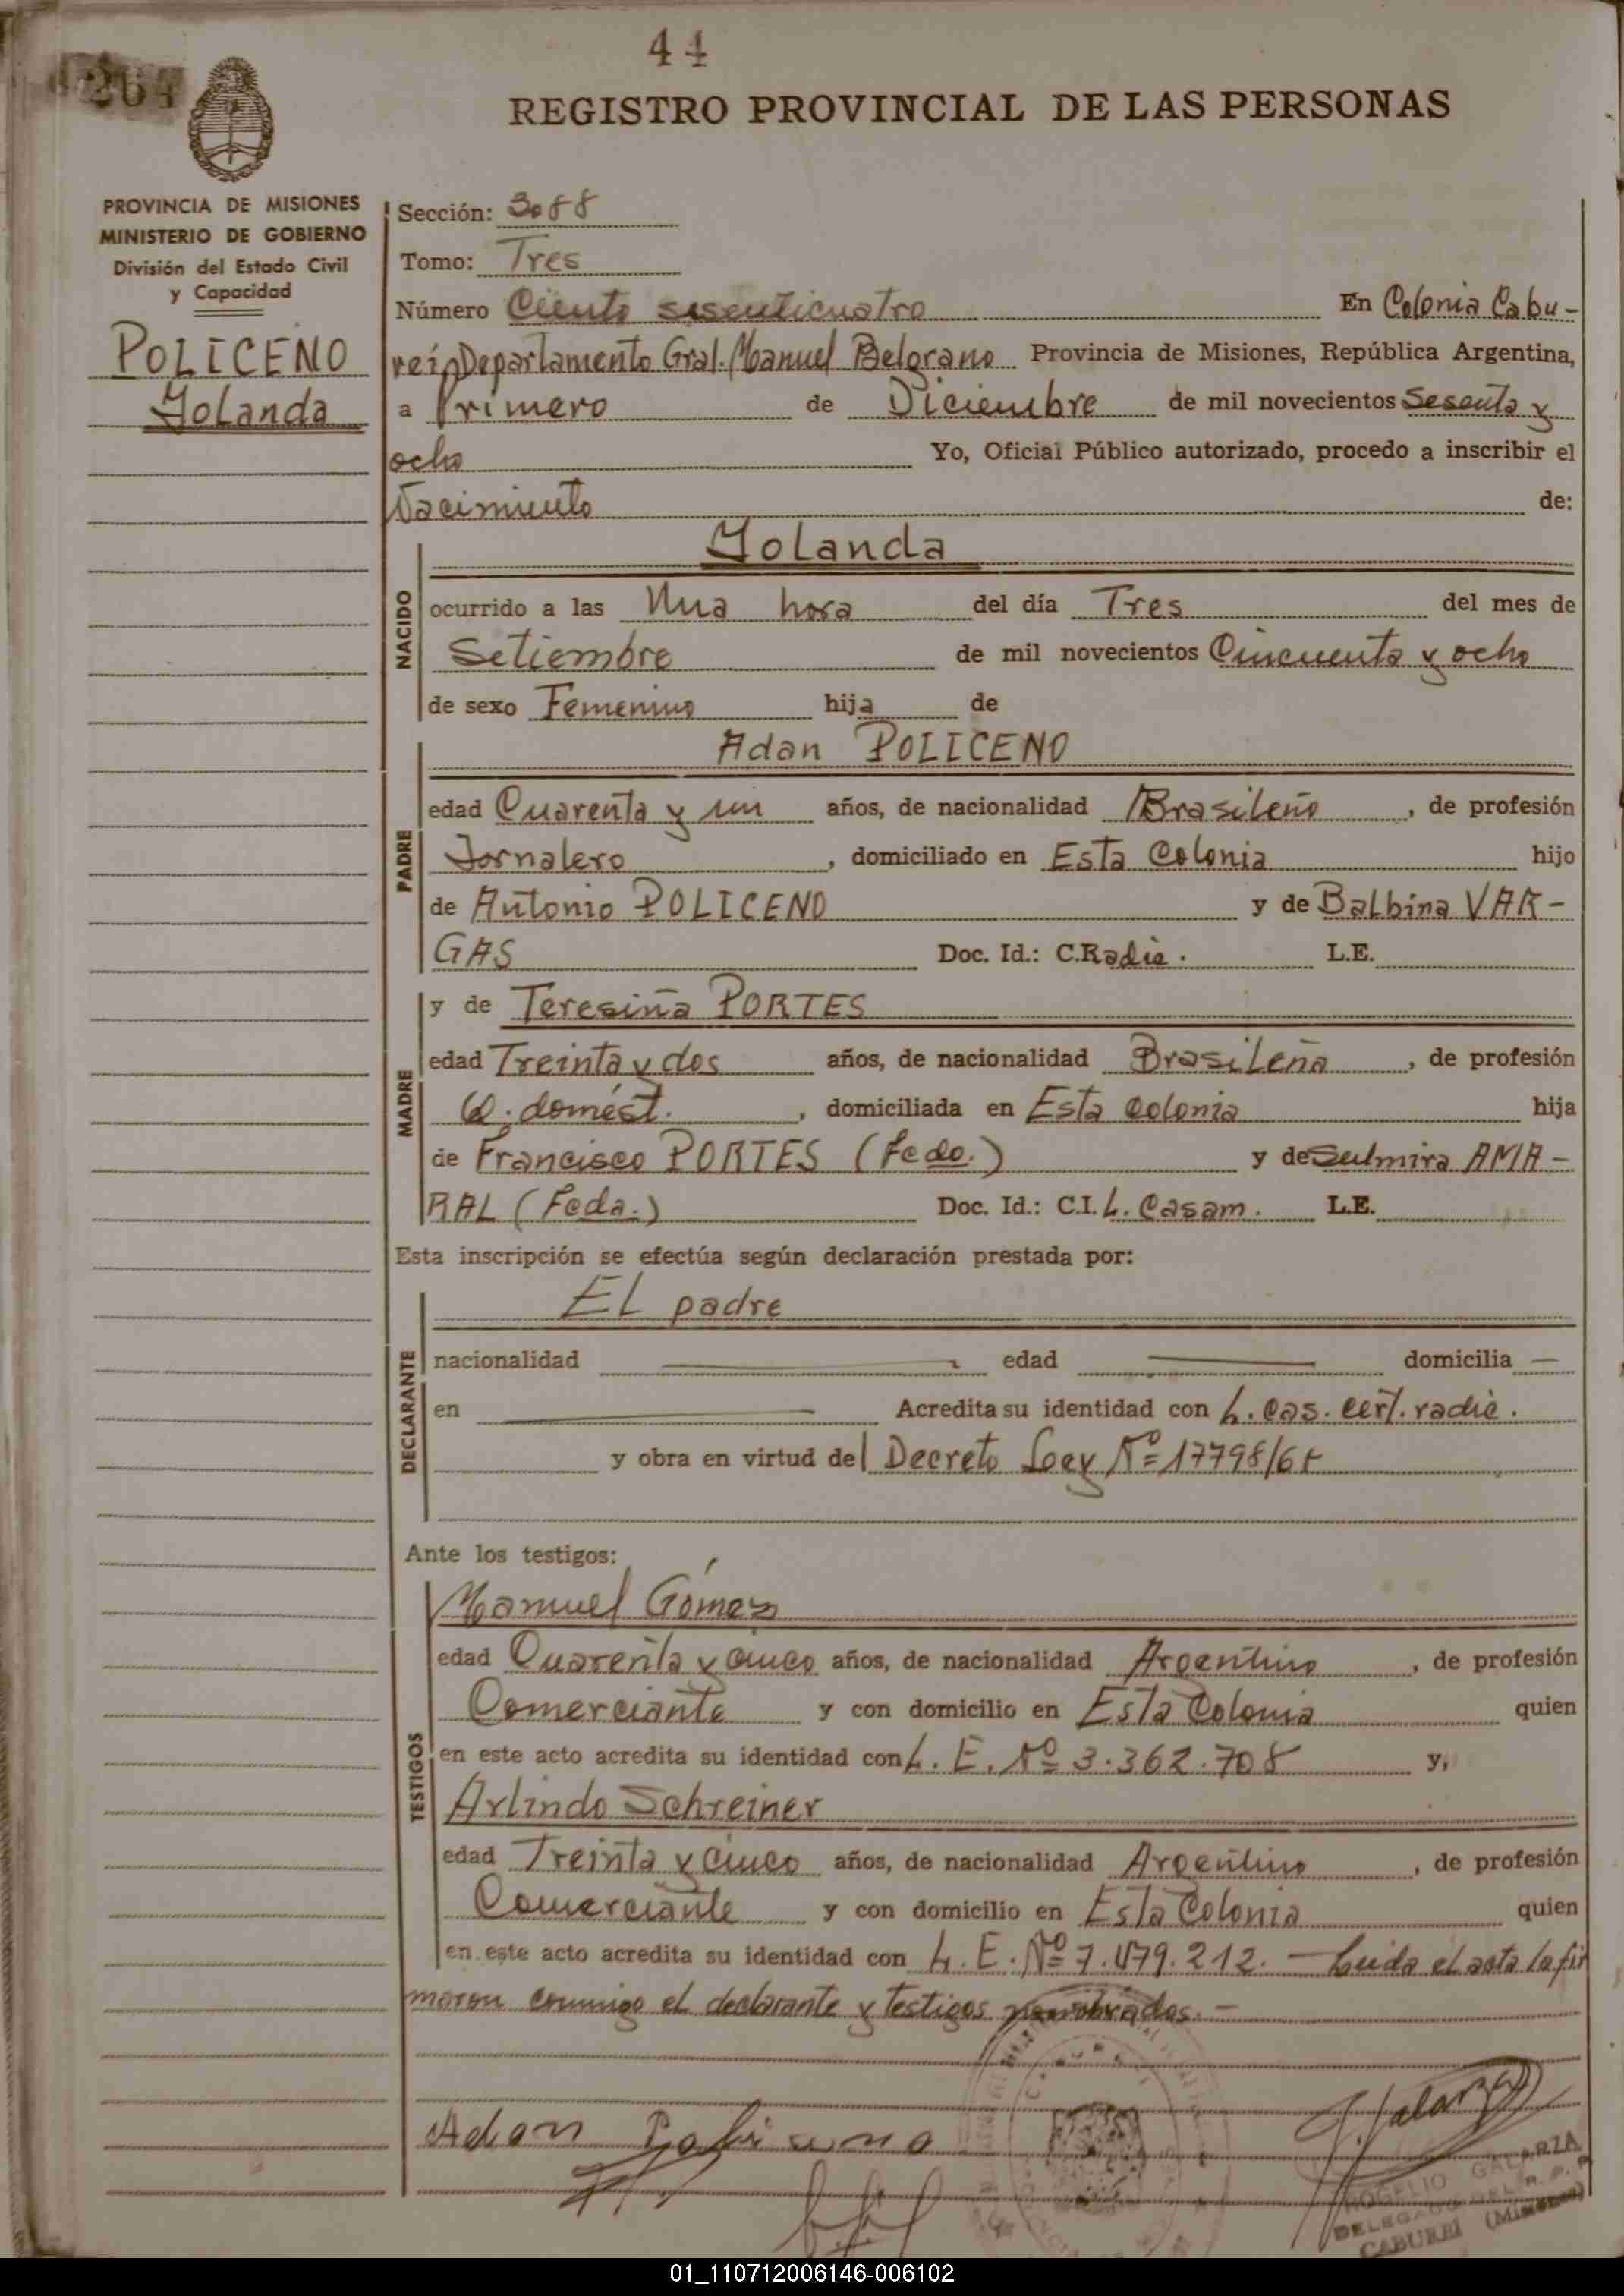 44
264
REGISTRO PROVINCIAL DE LAS PERSONAS
PROVINCIA DE MISIONES
MINISTERIO DE GOBIERNO
División del Estado Civil
y Capacidad
POLICENO
Yolanda
Sección: 3088
Tomo: Tres
Número Ciento sesenticuatro En Colonia Cabu-
rei, Departamento Gral. Manuel Belgrano Provincia de Misiones, República Argentina,
a Primero de Diciembre de mil novecientos Sesenta y
ocho Yo, Oficial Público autorizado, procedo a inscribir el
Nacimiento de:
NACIDO
Yolanda
ocurrido a las Una hora del día Tres del mes de
Setiembre de mil novecientos Cincuenta y ocho
de sexo Femenino hija de
PADRE
Adan POLICENO
edad Cuarenta y un años, de nacionalidad Brasileño, de profesión
Jornalero, domiciliado en Esta Colonia hijo
de Antonio POLICENO y de Balbina VAR-
GAS Doc. Id.: C.Radic. L.E.
MADRE
y de Teresiña PORTES
edad Treinta y dos años, de nacionalidad Brasileña, de profesión
Q. domést., domiciliada en Esta Colonia hija
de Francisco PORTES (Fcdo.) y de Sulmira AMA-
RAL (Fcda.) Doc. Id.: C.I. L. Casam. L.E.
Esta inscripción se efectúa según declaración prestada por:
DECLARANTE
El padre
nacionalidad — edad — domicilia —
en — Acredita su identidad con L. Cas. Cert. radic.
y obra en virtud del Decreto Ley Nº 17798/68
Ante los testigos:
TESTIGOS
Manuel Gómez
edad Cuarenta y cinco años, de nacionalidad Argentino, de profesión
Comerciante y con domicilio en Esta Colonia quien
en este acto acredita su identidad con L. E. Nº 3.362.708 y,
Arlindo Schreiner
edad Treinta y cinco años, de nacionalidad Argentino, de profesión
Comerciante y con domicilio en Esta Colonia quien
en este acto acredita su identidad con L. E. Nº 7.479.212. — Leida el acta la fir
maron conmigo el declarante y testigos nombrados. —
Adan
ROGELIO GALARZA
DELEGADO DEL R. P. P.
CABUREI (Misiones)
01_110712006146-006102